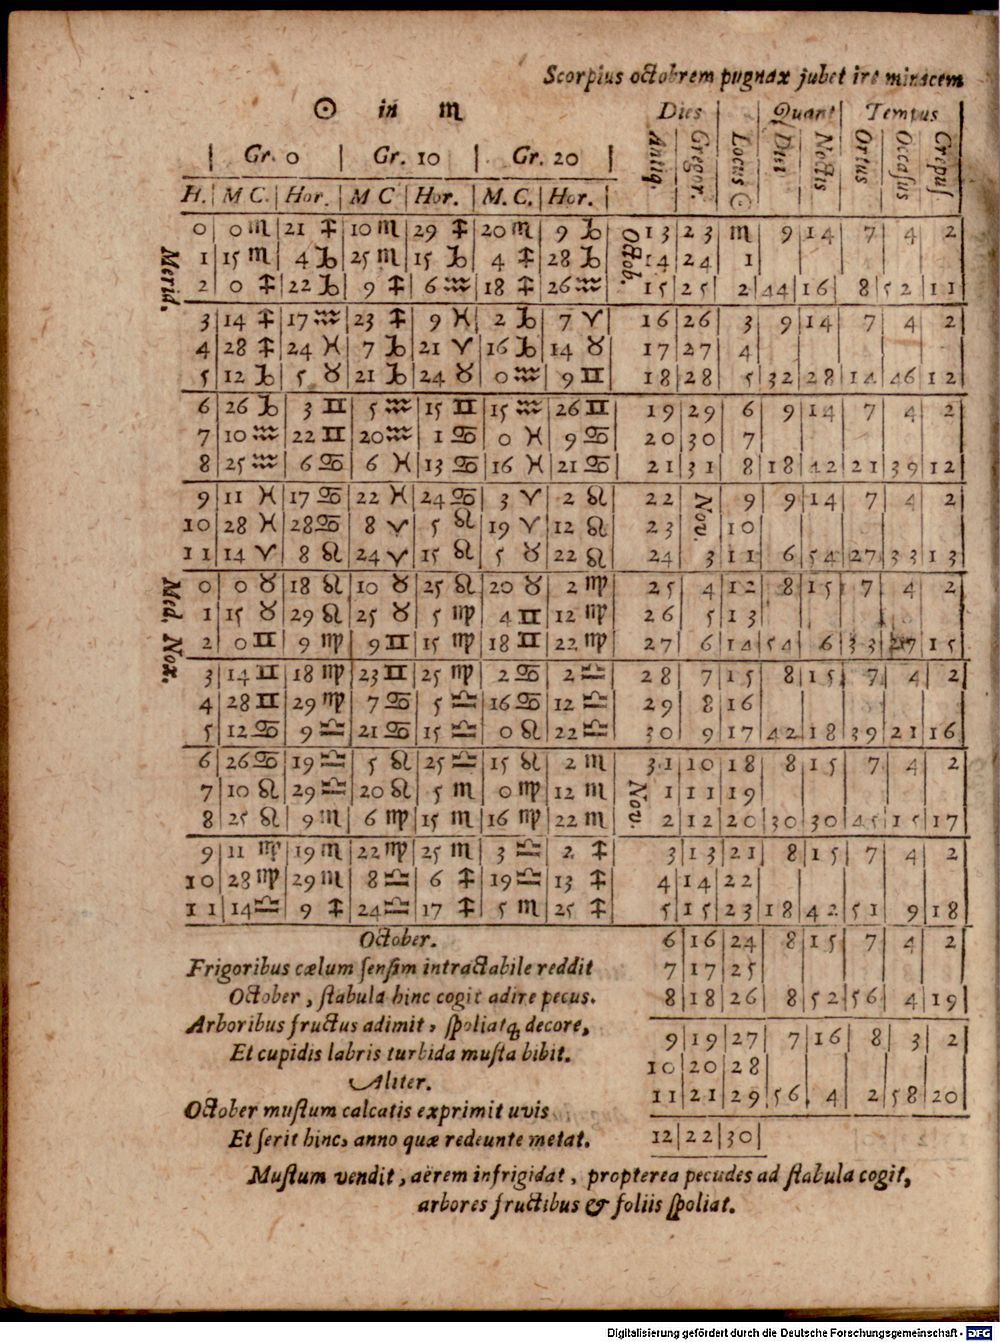 Scorpius octobrem pugnax jubet ire minacem
☉ in ♏
Dies | Quant | Tempus
Gr. 0 | Gr. 10 | Gr. 20 | Antiq. | Gregor. | Locus ☉ | Diei | Noctis | Ortus | Occasus | Crepus
H. | M C. | Hor. | M C | Hor. | M. C. | Hor.
Merid.
Octob.
0 | 0 ♏ | 21 ♐ | 10 ♏ | 29 ♐ | 20 ♏ | 9 ♑ | 13 | 23 | ♏ | 9 | 14 | 7 | 4 | 2
1 | 15 ♏ | 4 ♑ | 25 ♏ | 15 ♑ | 4 ♐ | 28 ♑ | 14 | 24 | 1
2 | 0 ♐ | 22 ♑ | 9 ♐ | 6 ♒ | 18 ♐ | 26 ♒ | 15 | 25 | 2 | 44 | 16 | 8 | 52 | 11
3 | 14 ♐ | 17 ♒ | 23 ♐ | 9 ♓ | 2 ♑ | 7 ♈ | 16 | 26 | 3 | 9 | 14 | 7 | 4 | 2
4 | 28 ♐ | 24 ♓ | 7 ♑ | 21 ♈ | 16 ♑ | 14 ♉ | 17 | 27 | 4
5 | 12 ♑ | 5 ♉ | 21 ♑ | 24 ♉ | 0 ♒ | 9 ♊ | 18 | 28 | 5 | 32 | 28 | 14 | 46 | 12
6 | 26 ♑ | 3 ♊ | 5 ♒ | 15 ♊ | 15 ♒ | 26 ♊ | 19 | 29 | 6 | 9 | 14 | 7 | 4 | 2
7 | 10 ♒ | 22 ♊ | 20 ♒ | 1 ♋ | 0 ♓ | 9 ♋ | 20 | 30 | 7
8 | 25 ♒ | 6 ♋ | 6 ♓ | 13 ♋ | 16 ♓ | 21 ♋ | 21 | 31 | 8 | 18 | 42 | 21 | 39 | 12
Nov.
9 | 11 ♓ | 17 ♋ | 22 ♓ | 24 ♋ | 3 ♈ | 2 ♌ | 22 | 9 | 9 | 14 | 7 | 4 | 2
10 | 28 ♓ | 28 ♋ | 8 ♈ | 5 ♌ | 19 ♈ | 12 ♌ | 23 | 10
11 | 14 ♈ | 8 ♌ | 24 ♈ | 15 ♌ | 5 ♉ | 22 ♌ | 24 | 3 | 11 | 6 | 54 | 27 | 33 | 13
Med. Nox.
0 | 0 ♉ | 18 ♌ | 10 ♉ | 25 ♌ | 20 ♉ | 2 ♍ | 25 | 4 | 12 | 8 | 15 | 7 | 4 | 2
1 | 15 ♉ | 29 ♌ | 25 ♉ | 5 ♍ | 4 ♊ | 12 ♍ | 26 | 5 | 13
2 | 0 ♊ | 9 ♍ | 9 ♊ | 15 ♍ | 18 ♊ | 22 ♍ | 27 | 6 | 14 | 54 | 6 | 33 | 27 | 15
3 | 14 ♊ | 18 ♍ | 23 ♊ | 25 ♍ | 2 ♋ | 2 ♎ | 28 | 7 | 15 | 8 | 15 | 7 | 4 | 2
4 | 28 ♊ | 29 ♍ | 7 ♋ | 5 ♎ | 16 ♋ | 12 ♎ | 29 | 8 | 16
5 | 12 ♋ | 9 ♎ | 21 ♋ | 15 ♎ | 0 ♌ | 22 ♎ | 30 | 9 | 17 | 42 | 18 | 39 | 21 | 16
6 | 26 ♋ | 19 ♎ | 5 ♌ | 25 ♎ | 15 ♌ | 2 ♏ | 31 | 10 | 18 | 8 | 15 | 7 | 4 | 2
Nov.
7 | 10 ♌ | 29 ♎ | 20 ♌ | 5 ♏ | 0 ♍ | 12 ♏ | 1 | 11 | 19
8 | 25 ♌ | 9 ♏ | 6 ♍ | 15 ♏ | 16 ♍ | 22 ♏ | 2 | 12 | 20 | 30 | 30 | 45 | 15 | 17
9 | 11 ♍ | 19 ♏ | 22 ♍ | 25 ♏ | 3 ♎ | 2 ♐ | 3 | 13 | 21 | 8 | 15 | 7 | 4 | 2
10 | 28 ♍ | 29 ♏ | 8 ♎ | 6 ♐ | 19 ♎ | 13 ♐ | 4 | 14 | 22
11 | 14 ♎ | 9 ♐ | 24 ♎ | 17 ♐ | 5 ♏ | 25 ♐ | 5 | 15 | 23 | 18 | 42 | 51 | 9 | 18
October.
Frigoribus cælum sensim intractabile reddit
October, stabula hinc cogit adire pecus.
Arboribus fructus adimit, spoliatq; decore,
Et cupidis labris turbida musta bibit.
Aliter.
October mustum calcatis exprimit uvis
Et serit hinc, anno quæ redeunte metat.
6 | 16 | 24 | 8 | 15 | 7 | 4 | 2
7 | 17 | 25
8 | 18 | 26 | 8 | 52 | 56 | 4 | 19
9 | 19 | 27 | 7 | 16 | 8 | 3 | 2
10 | 20 | 28
11 | 21 | 29 | 56 | 4 | 2 | 58 | 20
12 | 22 | 30
Mustum vendit, aërem infrigidat, propterea pecudes ad stabula cogit,
arbores fructibus & foliis spoliat.
Digitalisierung gefördert durch die Deutsche Forschungsgemeinschaft - DFG